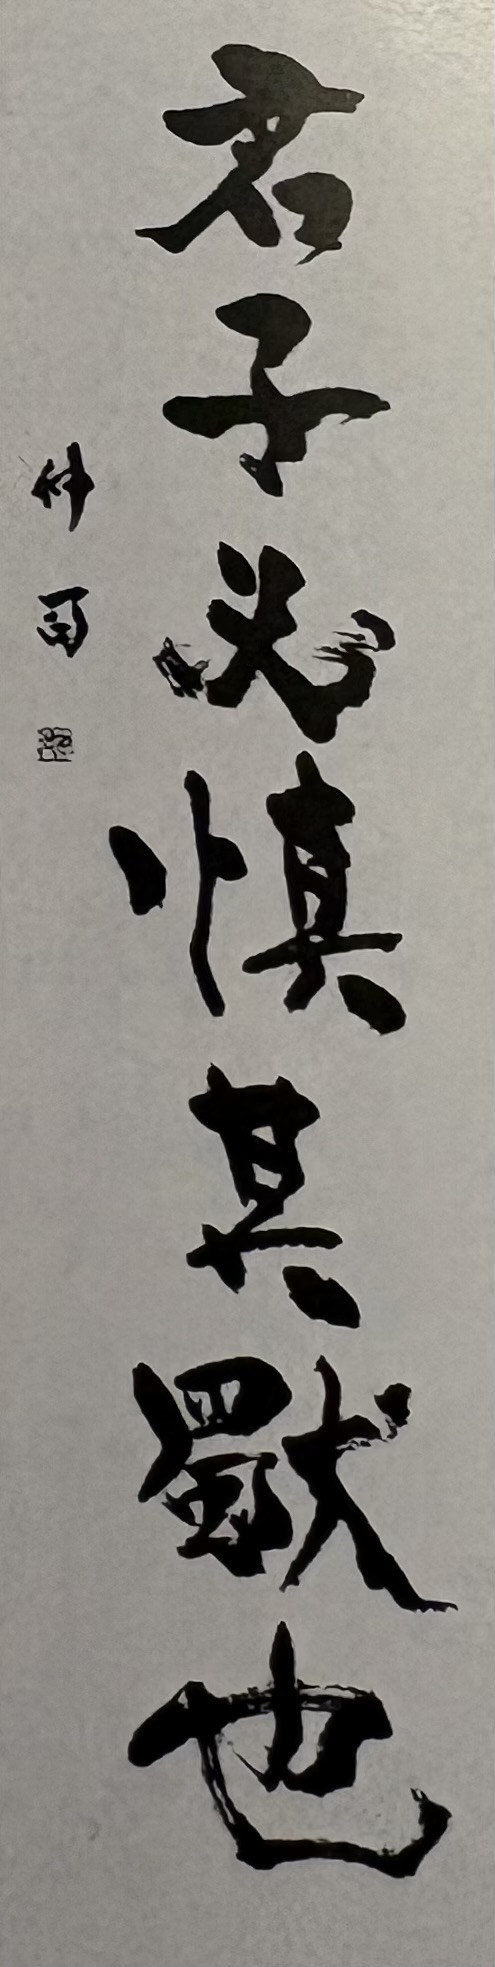 君子必慎其獨也
仲